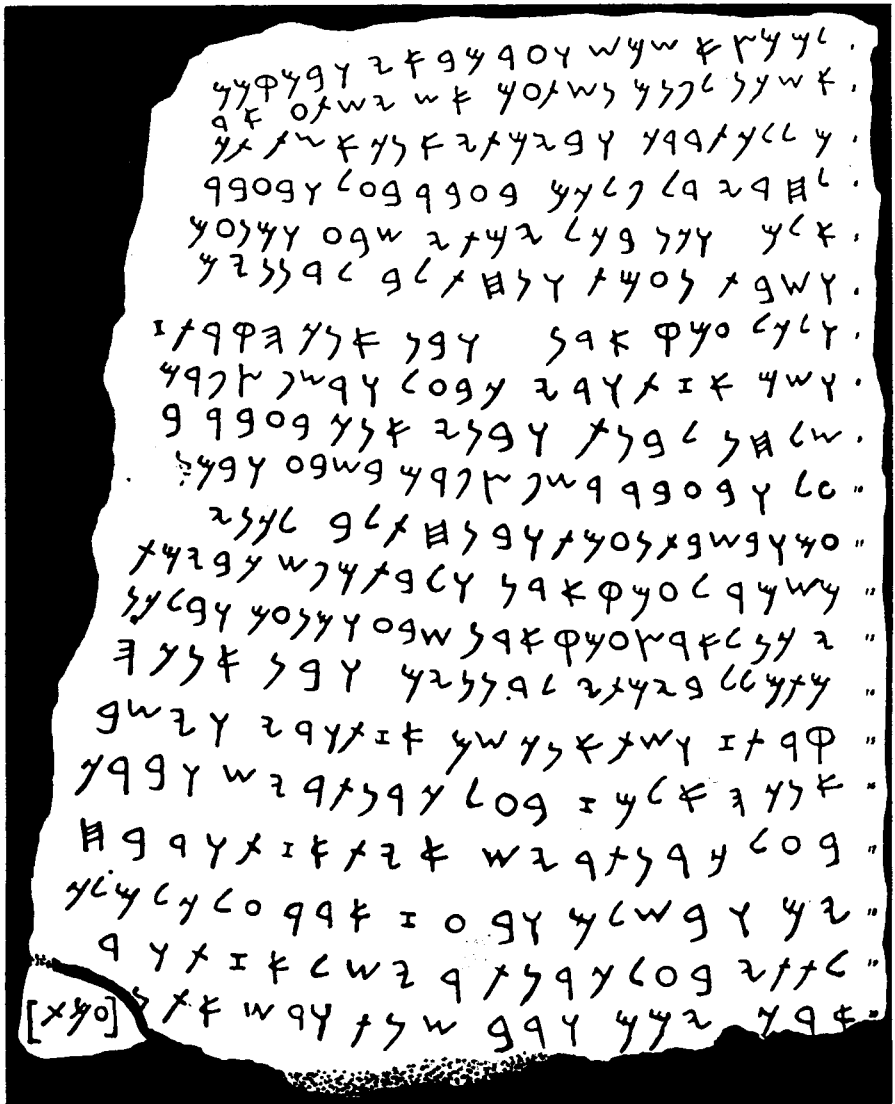 𐤋𐤌𐤌𐤑𐤀 𐤔𐤌𐤔 𐤅𐤏𐤃 𐤌𐤁𐤀𐤉 𐤅𐤁𐤌𐤒𐤌𐤌
𐤀𐤔 𐤊𐤍 𐤋𐤐𐤍𐤌 𐤍𐤔𐤕𐤏𐤌 𐤀𐤔 𐤉𐤔𐤕𐤏 𐤀𐤃
𐤌 𐤋𐤋𐤊𐤕 𐤃𐤓𐤊 𐤅𐤁𐤉𐤌𐤕𐤉 𐤀𐤍𐤊 𐤀𐤔𐤕 𐤕𐤊
𐤋𐤇𐤃𐤉 𐤃𐤋 𐤐𐤋𐤊𐤌 𐤁𐤏𐤁𐤓 𐤁𐤏𐤋 𐤅𐤁𐤏𐤁𐤓
𐤀𐤋𐤌 𐤅𐤊𐤍 𐤁𐤊𐤋 𐤉𐤌𐤕𐤉 𐤔𐤁𐤏 𐤅𐤌𐤍𐤏𐤌
𐤅𐤔𐤁𐤕 𐤍𐤏𐤌𐤕 𐤅𐤍𐤇𐤕 𐤋𐤁 𐤋𐤃𐤍𐤍𐤉𐤌
𐤅𐤋𐤊𐤋 𐤏𐤌𐤒 𐤀𐤃𐤍 𐤅𐤁𐤍 𐤀𐤍𐤊 𐤄𐤒𐤓𐤕 𐤆
𐤅𐤔𐤌 𐤀𐤆𐤕𐤅𐤃𐤉 𐤊 𐤁𐤏𐤋 𐤅𐤓𐤔𐤐 𐤑𐤐𐤓𐤌
𐤔𐤋𐤇𐤍 𐤋𐤁𐤍𐤕 𐤅𐤁𐤍𐤉 𐤀𐤍𐤊 𐤁𐤏𐤁𐤓 𐤁
𐤏𐤋 𐤅𐤁𐤏𐤁𐤓 𐤓𐤔𐤐 𐤑𐤐𐤓𐤌 𐤁𐤔𐤁𐤏 𐤅𐤁𐤌𐤍
𐤏𐤌 𐤅𐤁𐤔𐤁𐤕 𐤍𐤏𐤌𐤕 𐤅𐤁𐤍𐤇𐤕 𐤋𐤁 𐤋𐤊𐤍𐤉
𐤌𐤔𐤌𐤓 𐤋𐤏𐤌𐤒 𐤀𐤃𐤍 𐤅𐤋𐤁𐤕 𐤌𐤐𐤔 𐤊 𐤁𐤉𐤌𐤕
𐤉 𐤊𐤍 𐤋𐤀𐤓𐤑 𐤏𐤌𐤒 𐤀𐤃𐤍 𐤔𐤁𐤏 𐤅𐤌𐤍𐤏𐤌 𐤅𐤁𐤋 𐤊𐤍
𐤌𐤕𐤌 𐤋𐤋 𐤁𐤉𐤌𐤕𐤉 𐤋𐤃𐤍𐤍𐤉𐤌 𐤅𐤁𐤍 𐤀𐤍𐤊 𐤄
𐤒𐤓𐤕 𐤆 𐤅𐤔𐤕 𐤀𐤍𐤊 𐤔𐤌 𐤀𐤆𐤕𐤅𐤃𐤉 𐤅𐤉𐤔𐤁
𐤀𐤍𐤊 𐤄𐤀𐤋𐤌 𐤆 𐤁𐤏𐤋 𐤊𐤓𐤍𐤕𐤓𐤉𐤔 𐤅𐤁𐤓𐤊
𐤁𐤏𐤋 𐤊𐤓𐤍𐤕𐤓𐤉𐤔 𐤀𐤉𐤕 𐤀𐤆𐤕𐤅𐤃 𐤁𐤇
𐤉𐤌 𐤅𐤁𐤔𐤋𐤌 𐤅𐤁𐤏𐤆 𐤀𐤃𐤓 𐤏𐤋 𐤊𐤋 𐤌𐤋𐤊
𐤋𐤕𐤕𐤉 𐤁𐤏𐤋 𐤊𐤓𐤍𐤕𐤓𐤉𐤔 𐤋𐤀𐤆𐤕𐤅𐤃
𐤀𐤓𐤊 𐤉𐤌𐤌 𐤅𐤓𐤁 𐤔𐤍𐤕 𐤅𐤓𐤔𐤀𐤕 𐤍[𐤏𐤌𐤕]